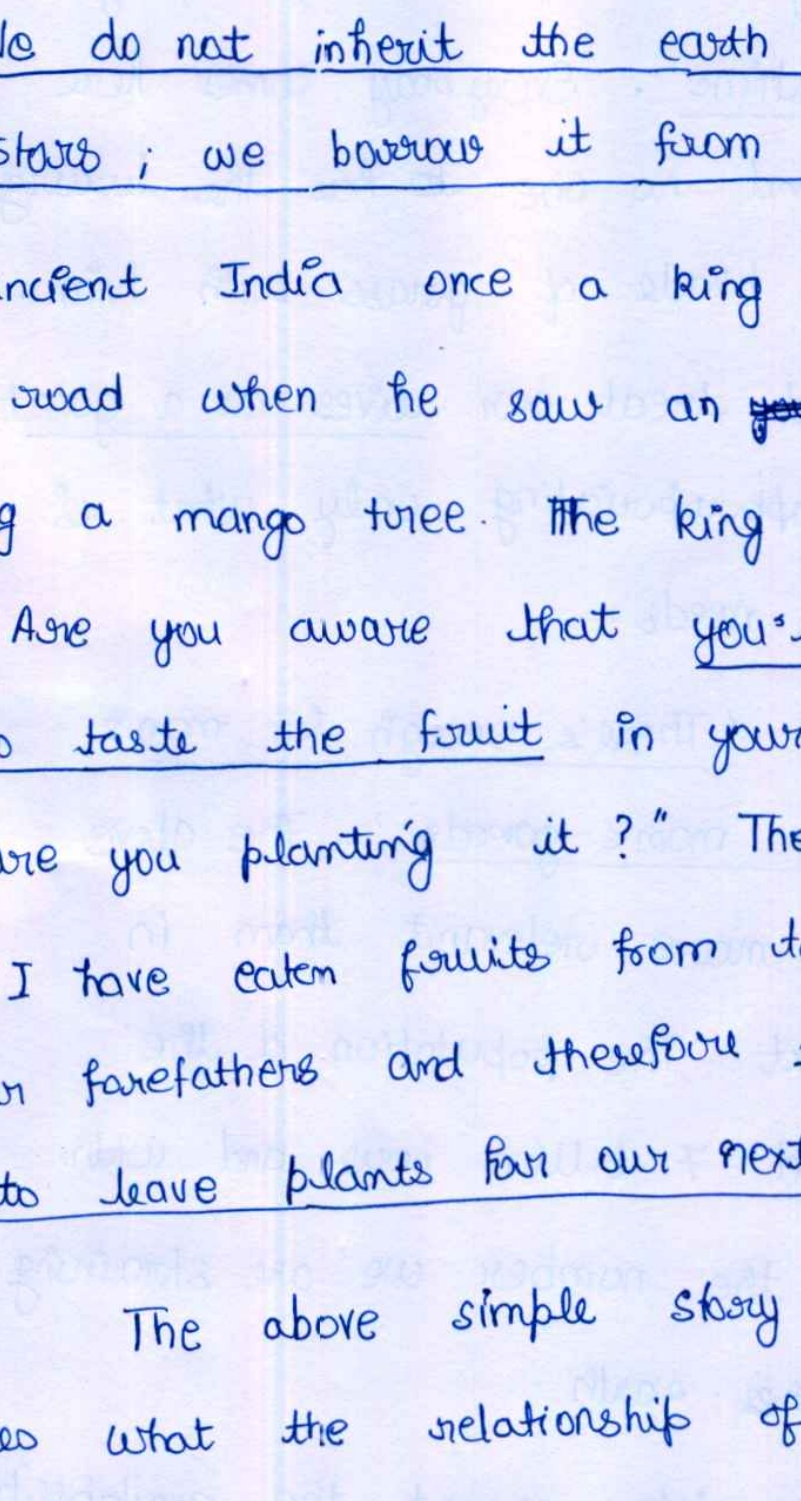 do not inherit the earth
stors ; we borrow it from
ncient India once a king
road when he saw an
g a mango tree. The king
Are you aware that you
taste the fruit in your
are you planting it ?" The
I have eaten fruits from
forefathers and therefore
to leave plants for our next
The above simple story
es what the relationship of